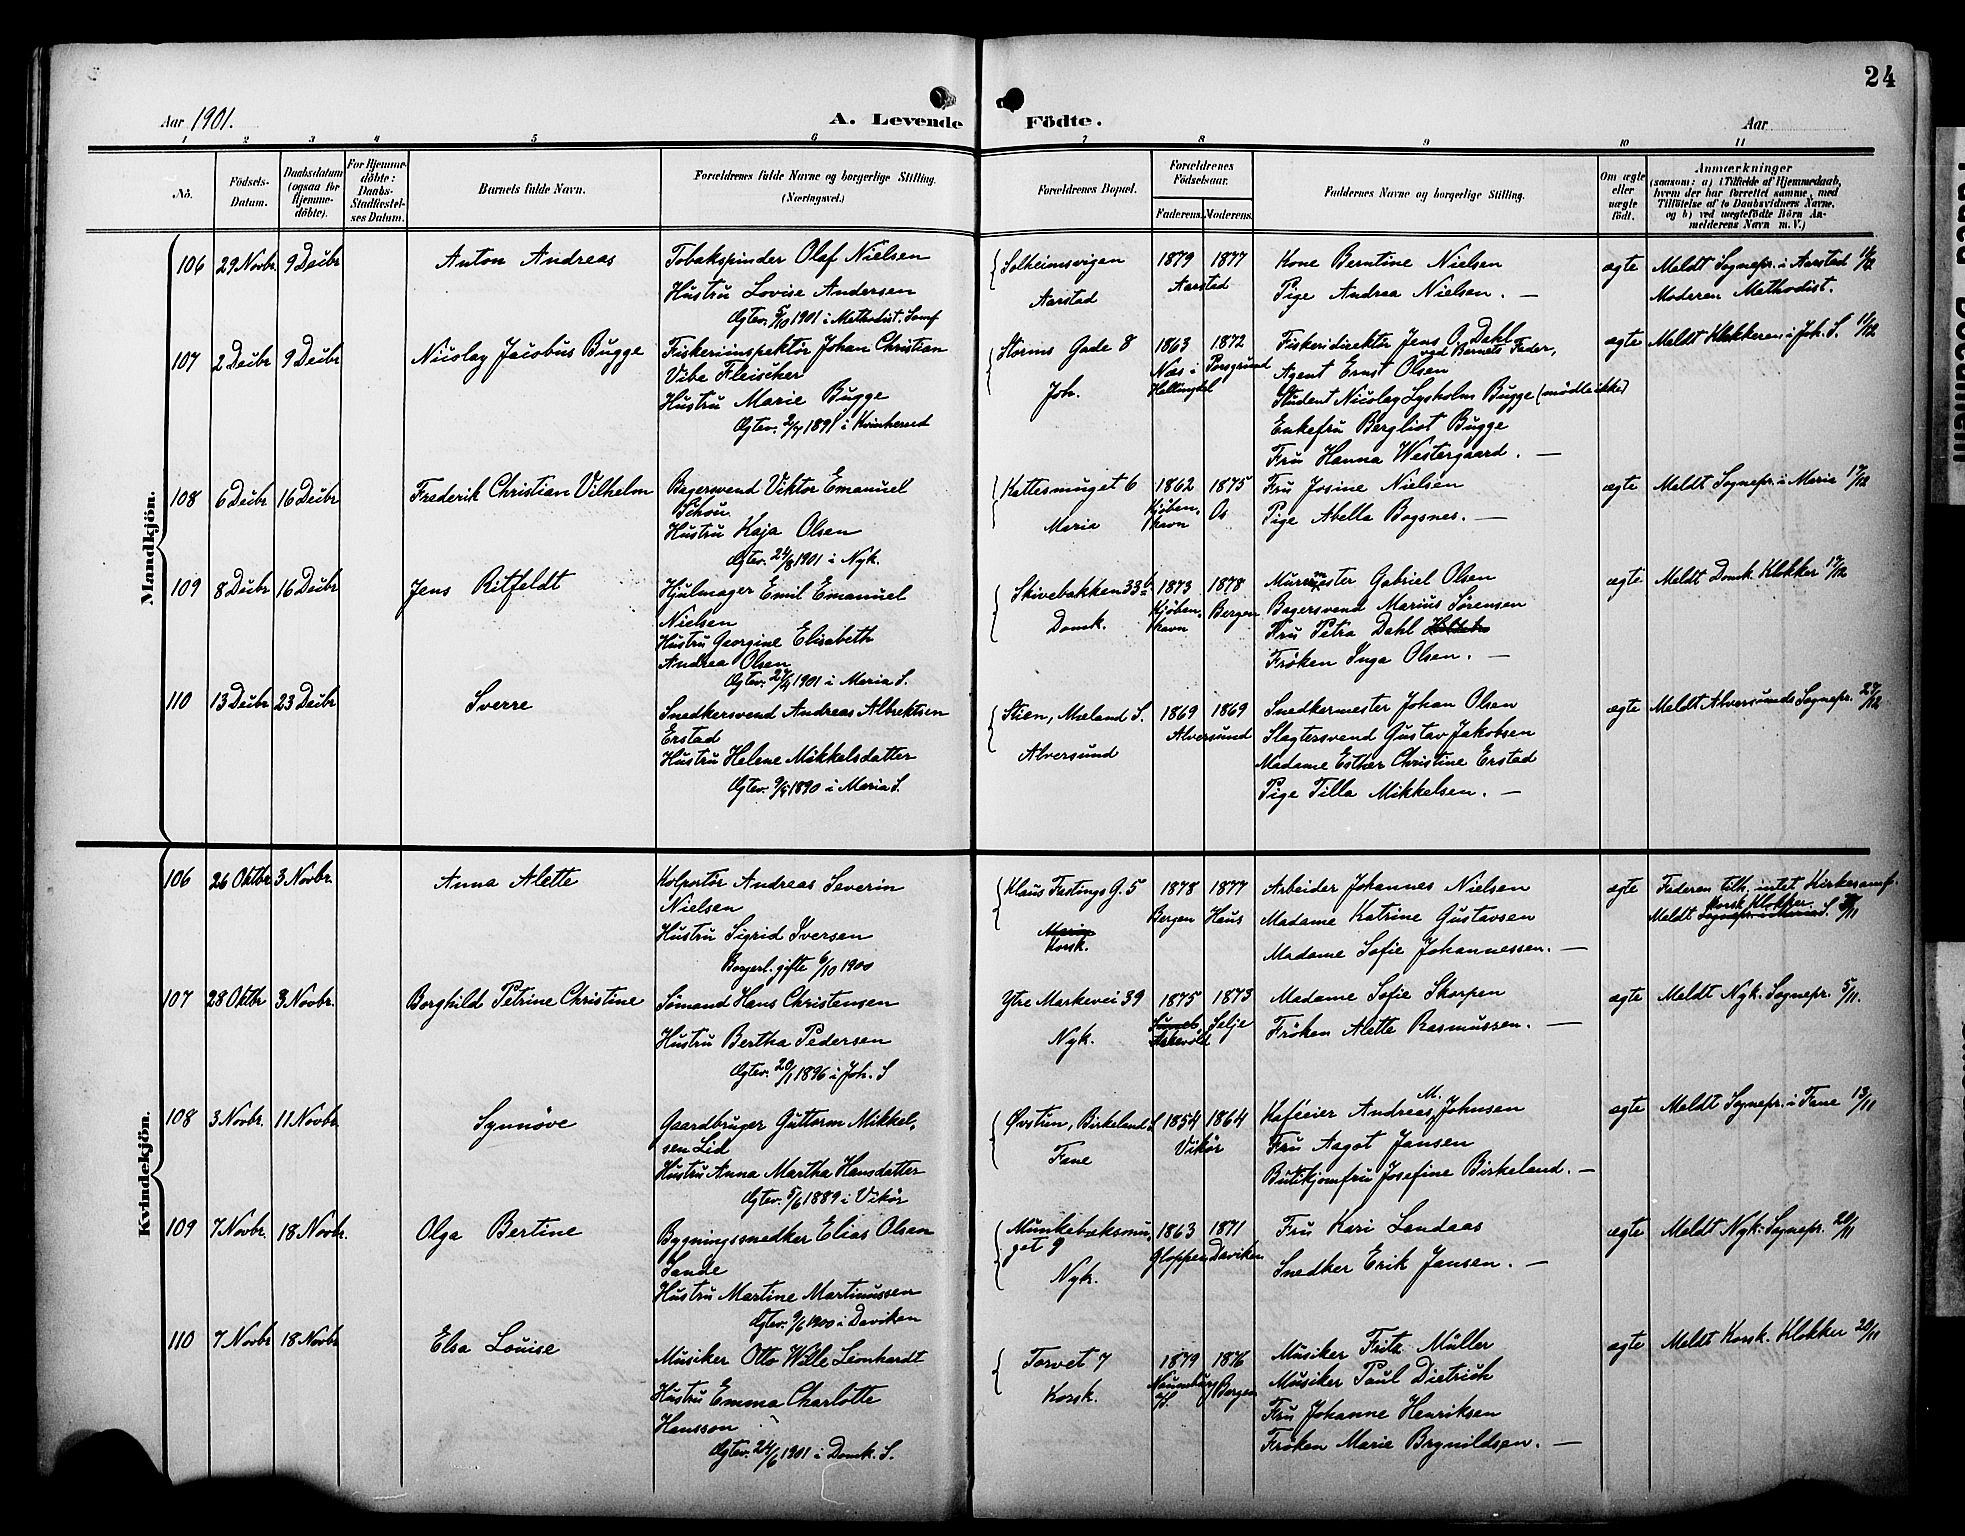 24
Aar 1901.
A. Levende Födte.
Aar
1 2 3 4 5 6 7 8 9 10 11
No.
Födsels-Datum.
Daabsdatum (ogsaa for Hjemmedöbte).
For Hjemmedöbte: Daabs-Stadfæstelses Datum.
Barnets fulde Navn.
Forældrenes fulde Navne og borgerlige Stilling. (Næringsvei.)
Forældrenes Bopæl.
Forældrenes Fødselsaar.
Faderens. Moderens.
Faddernes Navne og borgerlige Stilling.
Om ægte eller uægte født.
Anmærkninger
(saasom: a) i Tilfælde af Hjemmedaab, hvem der har forrettet samme, med Tilføielse af to Daabsvidners Navne, og b) ved uægtefödte Börn Anmelderens Navn m. V.)
Mandkjön.
106 29 Novbr 9 Decbr Anton Andreas
Tobakspinder Olaf Nielsen
Hustru Lovise Andersen
Ægtev. 5/10 1901 i Methodist. Samf
Solheimsvigen
Aarstad
1879 1877
Aarstad
Kone Berntine Nielsen
Pige Andrea Nielsen. —
ægte
Meldt Sognepr. i Aarstad
Moderen Methodist.
107 2 Decbr 9 Decbr Nicolay Jacobus Bugge
Fiskeriinspektör Johan Christian
Vibe Fleischer
Hustru Marie Bugge
Ægtev. 2/7 1891 i Kvinherred
Storms Gade 8
Joh.
1863 1872
Næs i Hallingdal Porsgrund
Fiskeridirektör Jens O. Dahl
ved Barnets Fader,
Agent Ernst Olsen
Student Nicolay Lysholm Bugge (mødte ikke)
Enkefru Bergliot Bugge
Fru Hanna Westergaard. —
ægte
Meldt Klokkeren i Joh. S. 11/12
108 6 Decbr 16 Decbr Frederik Christian Vilhelm
Bagersvend Viktor Emanuel
Schou
Hustru Kaja Olsen
Ægtev. 24/8 1901 i Nyk.
Kattesmuget 6
Marie
1862 1875
Kjøbenhavn Os
Fru Josine Nielsen
Pige Abella Bogsnes. —
ægte
Meldt Sognepr. i Maria 17/12
109 8 Decbr 16 Decbr Jens Ritfeldt
Hjulmager Emil Emanuel
Nielsen
Hustru Georgine Elisabeth
Andrea Olsen
Ægtev. 27/4 1901 i Maria S.
Skivebakken 33 b
Domk.
1873 1878
Kjøbenhavn Bergen
Murmester Gabriel Olsen
Bagersvend Marius Sørensen
Fru Petra Dahl
Frøken Inga Olsen. —
ægte
Meldt Domk. Klokker 17/12
110 13 Decbr 23 Decbr Sverre
Snedkersvend Andreas Albrektsen
Erstad
Hustru Helene Mikkelsdatter
Ægtev. 1890 i Maria S.
Stien, Mæland S.
Alversund
1869 1869
Alversund
Snedkermester Johan Olsen
Slagtersvend Gustav Jakobsen
Madame Esther Christine Erstad
Pige Tilla Mikkelsen. —
ægte
Meldt Alversunds Sognepr. 27/12
Kvindekjön.
106 26 Oktbr 3 Novbr. Anna Alette
Kolportör Andreas Severin
Nielsen
Hustru Sigrid Iversen
Borgerl. gifte 6/10 1900
Klaus Fastings G. 5
Maria
Korsk.
1878 1877
Bergen Haus
Arbeider Johannes Nielsen
Madame Katrine Gustavsen
Madame Sofie Johannessen. —
ægte
Faderen tilh. intet Kirkesamf.
Korsk. Klokker
Meldt Sognepr. i Maria S.
107 28 Oktbr 3 Novbr. Borghild Petrine Christine
Sömand Hans Christensen
Hustru Bertha Pedersen
Ægtev. 20/1 1896 i Joh. S
Ytre Markevei 39
Nyk.
1875 1873
Askevold Selje
Madame Sofie Skorpen
Frøken Alette Rasmussen. —
ægte
Meldt Nyk. Sognepr. 5/11.
108 3 Novbr. 11 Novbr Synnöve
Gaardbruger Guttorm Mikkelsen Lid
Hustru Anna Martha Hansdatter
Ægtev. 5/6 1889 i Vikör
Øvstun, Birkeland S
Fane
1854 1864
Vikör
Kaféeier Andreas M. Johnsen
Fru Aagot Jansen
Butikjomfru Josefine Birkeland. —
ægte
Meldt Sognepr. i Fane 13/11
109 7 Novbr. 18 Novbr. Olga Bertine
Bygningssnedker Elias Olsen
Sande
Hustru Martine Martinussen
Ægtev. 9/6 1900 i Daviken
Munkebæksmuget 9
Nyk.
1863 1871
Gloppen Daviken
Fru Kari Landaas
Snedker Erik Jansen. —
ægte
Meldt Nyk. Sognepr. 20/11
110 7 Novbr 18 Novbr Elsa Louise
Musiker Otto Wille Leonhardt
Hustru Emma Charlotte
Hansson
Ægtev. 24/6 1901 i Domk. S.
Torvet 7
Korsk.
1879 1876
Naumburg Bergen
Musiker Fritz Müller
Musiker Paul Dietrich
Fru Johanne Henriksen
Frøken Marie Brynildsen. —
ægte
Meldt Korsk. Klokker 20/11